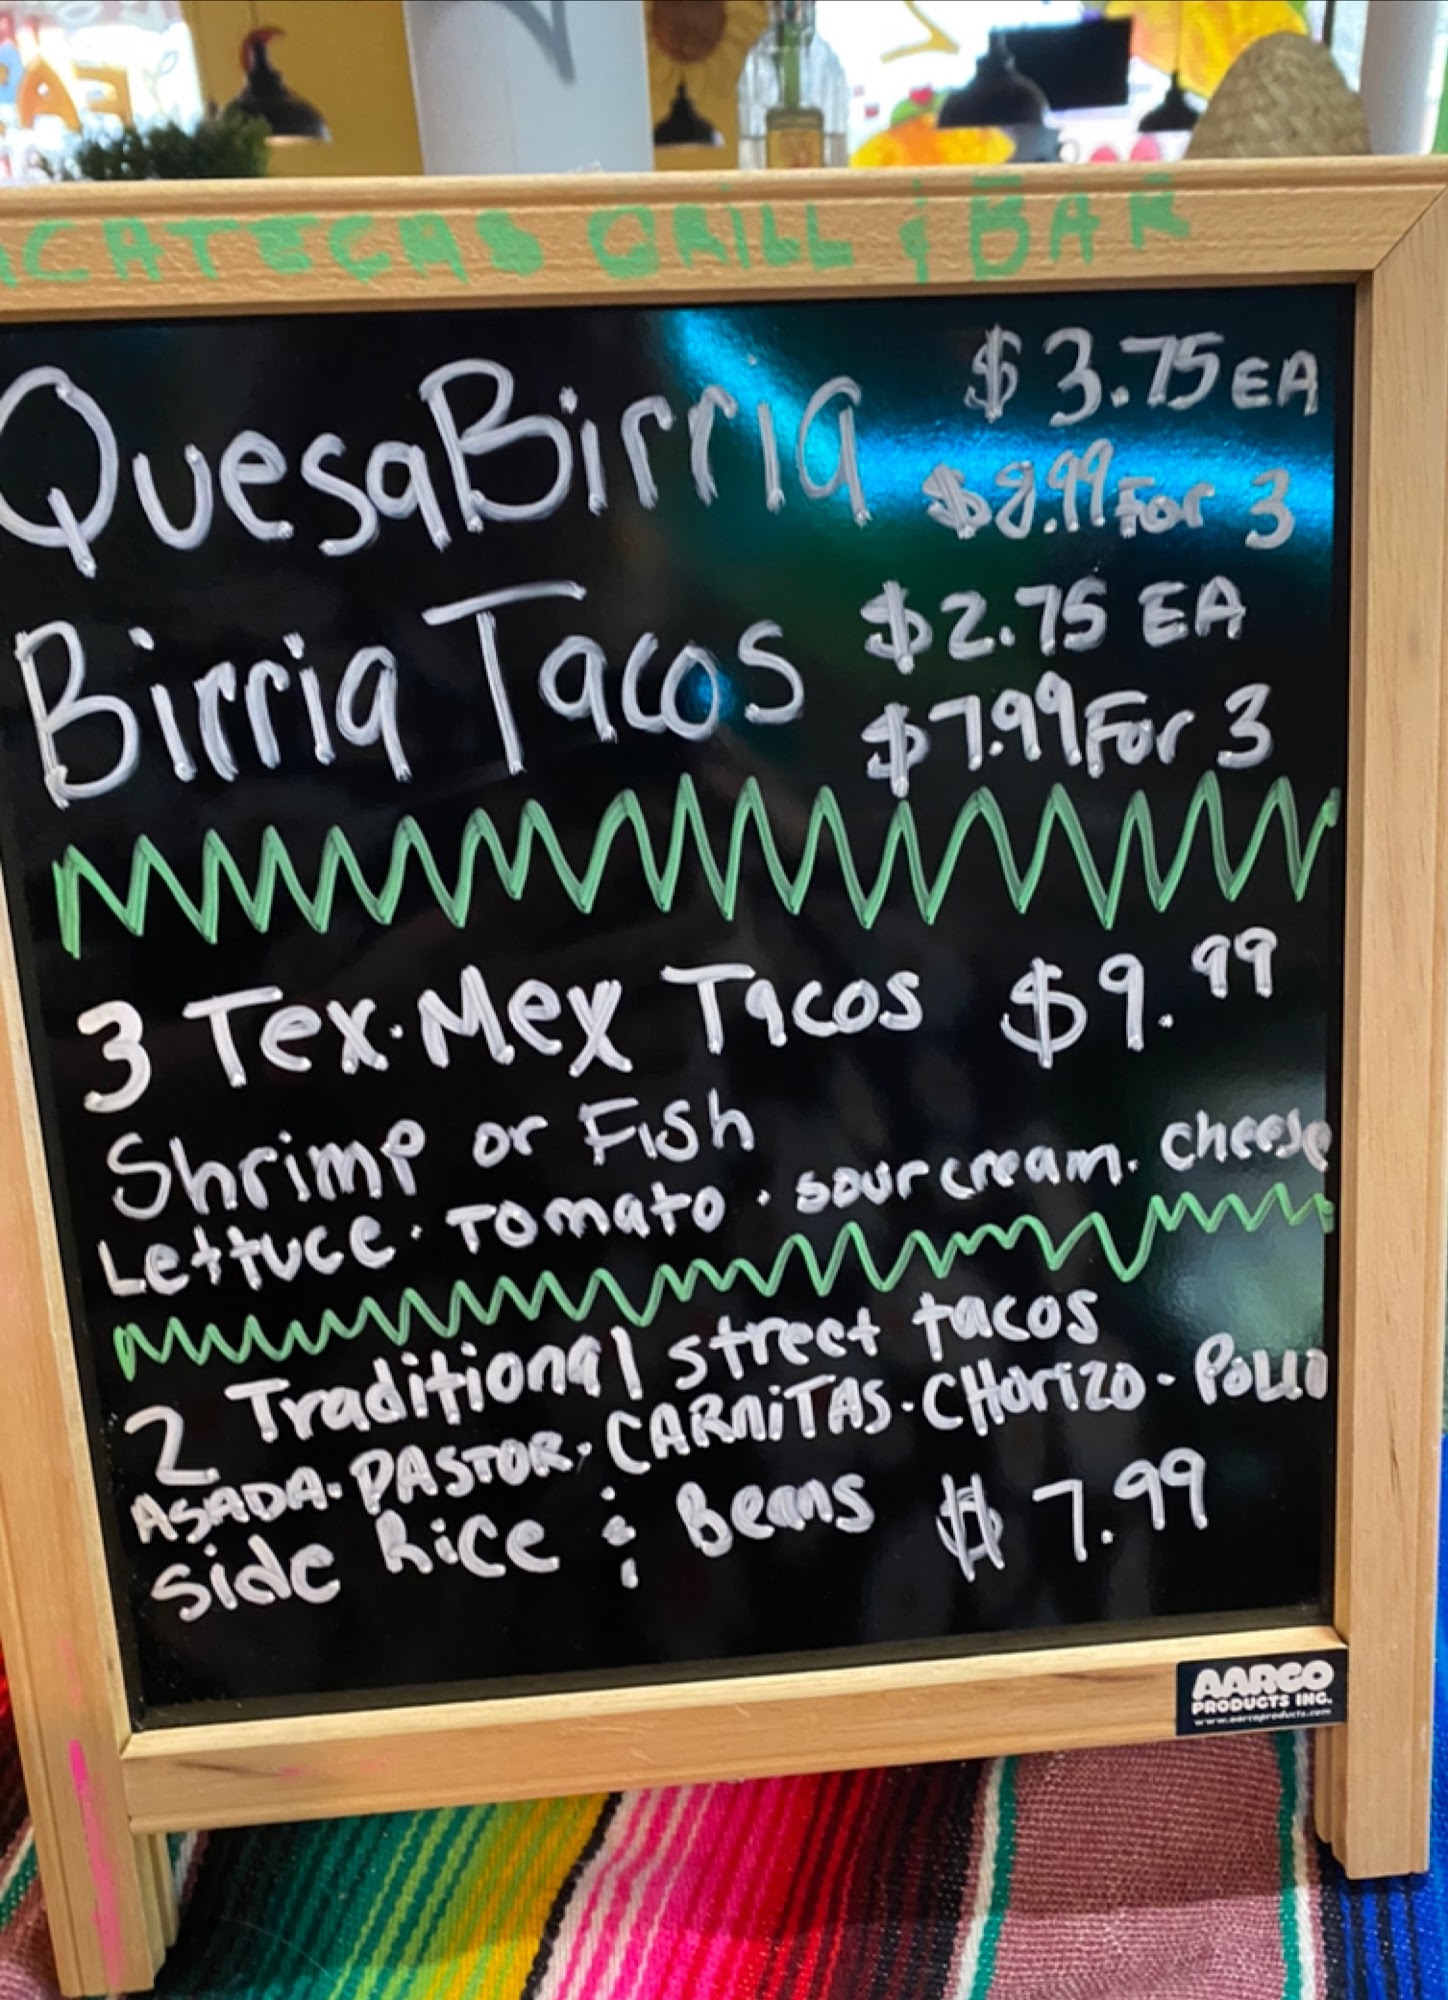 ACATECAS GRILL & BAR
QuesaBirria $3.75 EA
$8.99 For 3
Birria Tacos $2.75 EA
$7.99 For 3
3 Tex-Mex Tacos $9.99
Shrimp or Fish
Lettuce · Tomato · sour cream · cheese
2 Traditional street tacos
ASADA · PASTOR · CARNiTAS · CHorizo - Pollo
Side Rice & Beans $7.99
AARCO
PRODUCTS INC.
www.aarcoproducts.com